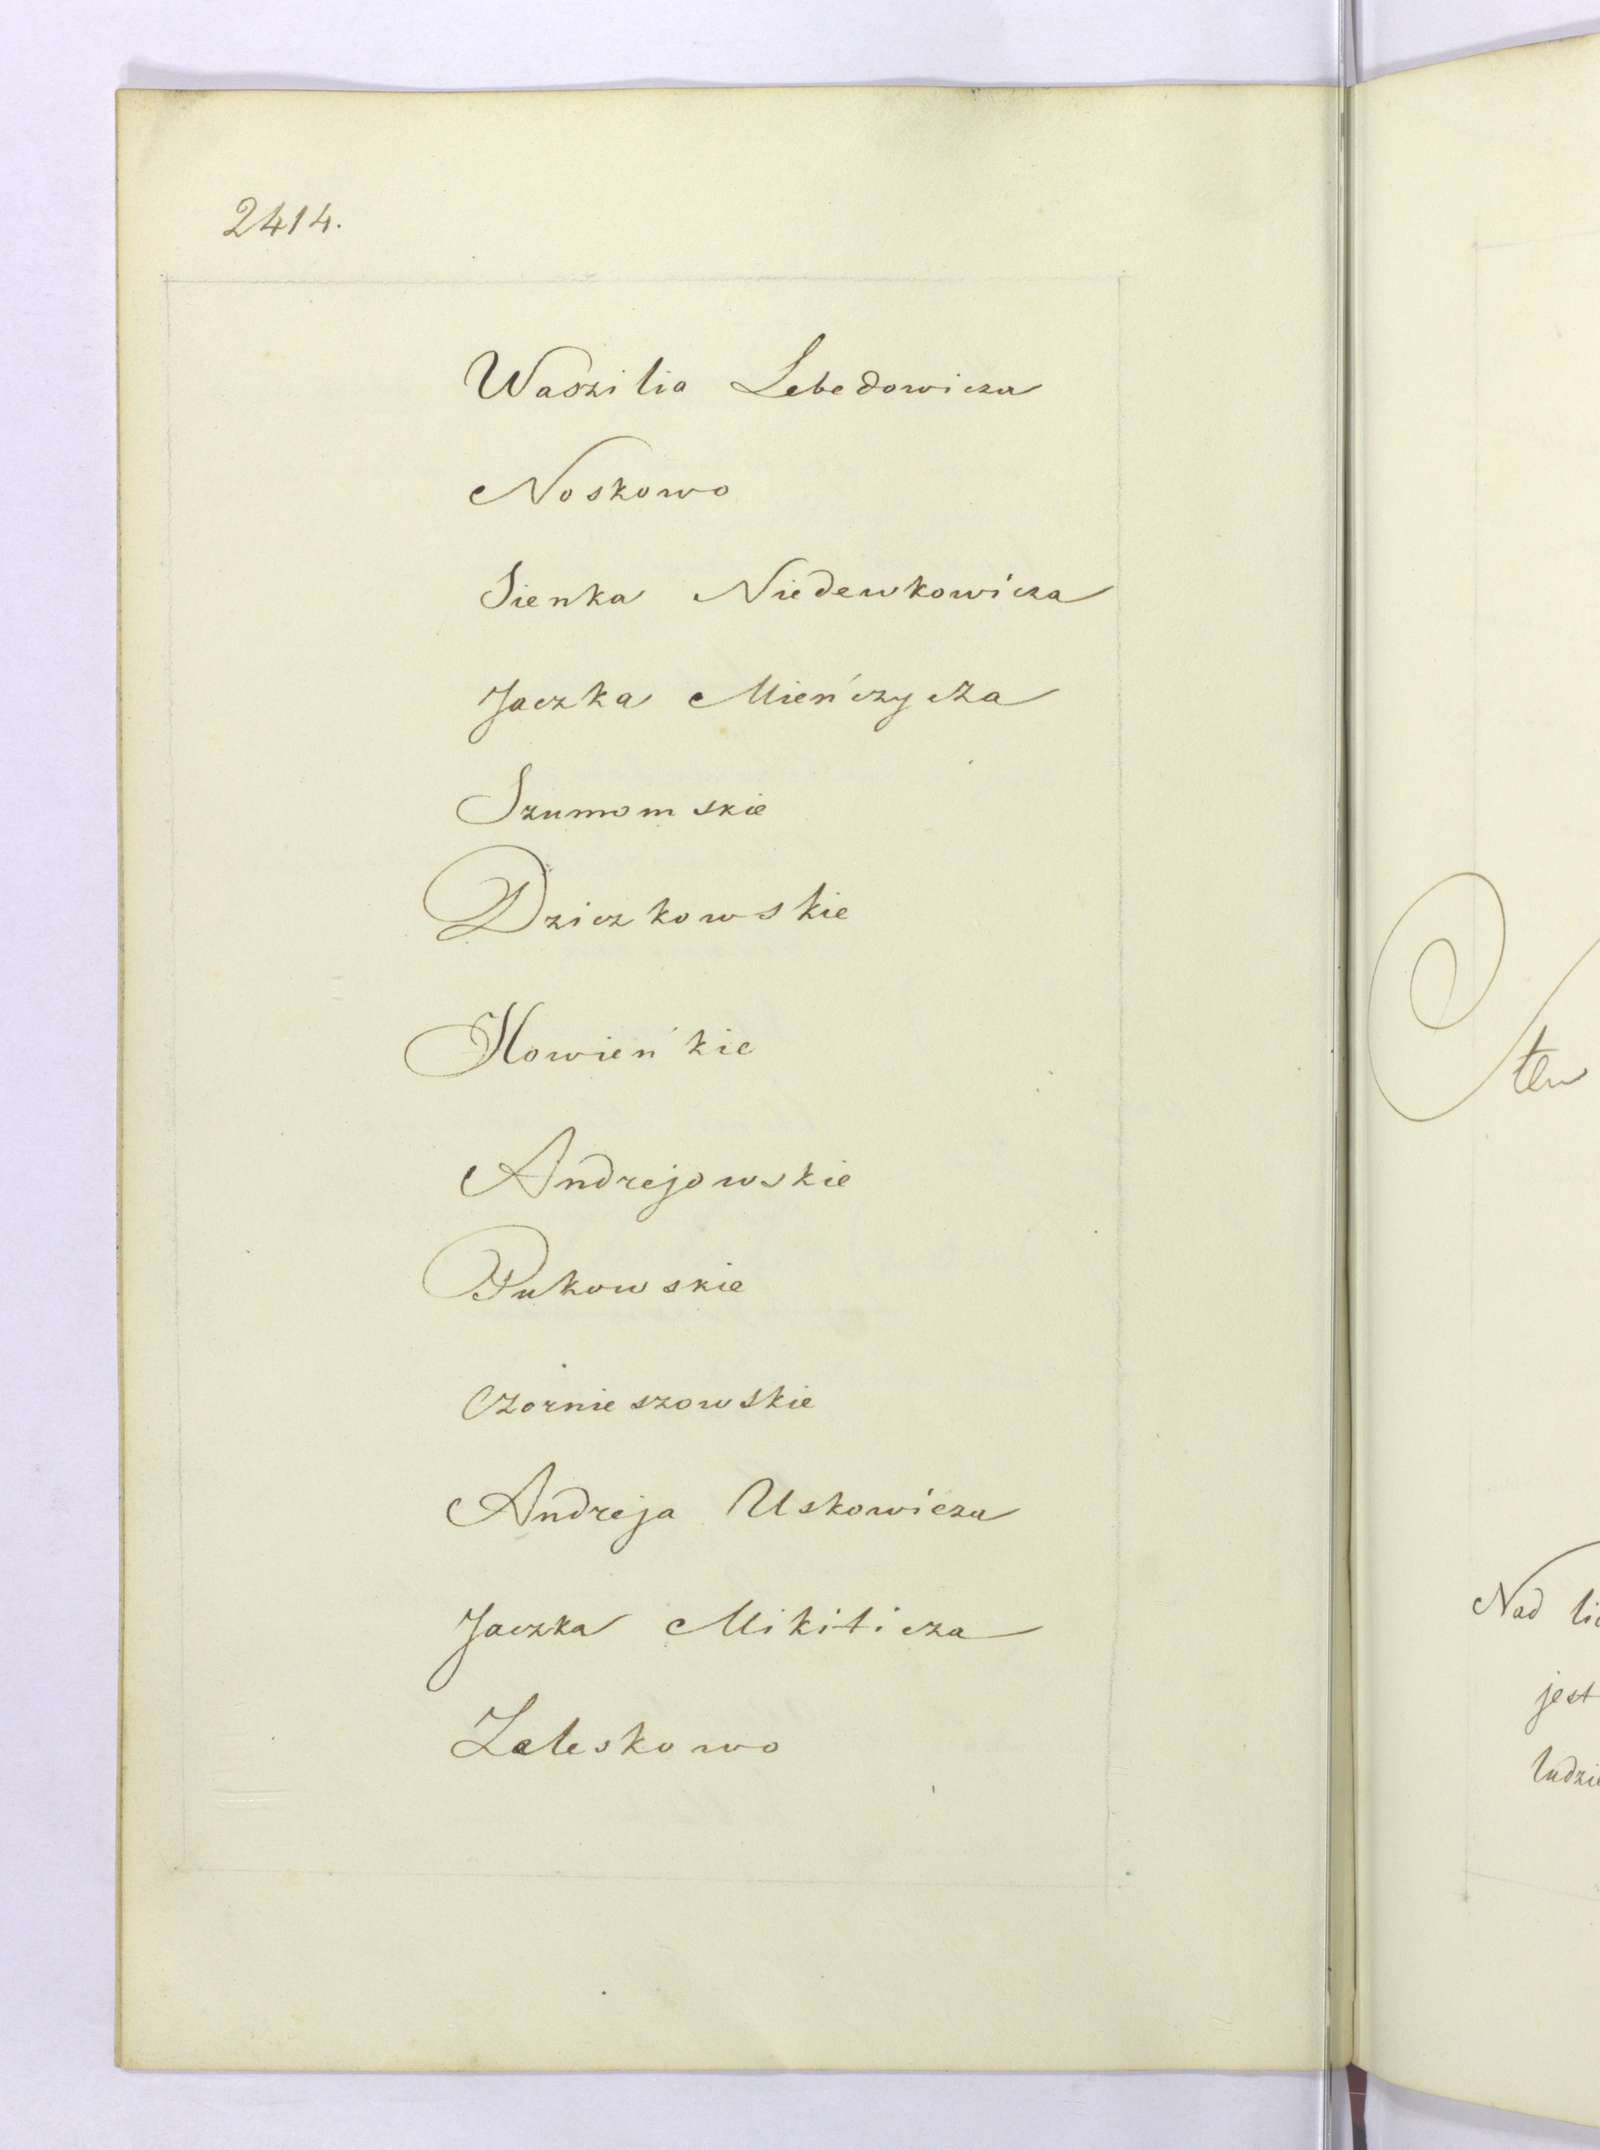 2414.
Waszilia Lebedowicza
Noskowo
Sienka Niedewkowicza
Jaczka Mieńczycza
Szumomskie
Dziczkowskie
Howieńkie
Andrejowskie
Pukowskie
Czornieszowskie
Andreja Uskowicza
Jaczka Mikiticza
Zaleskowo
ten
Nad
jest